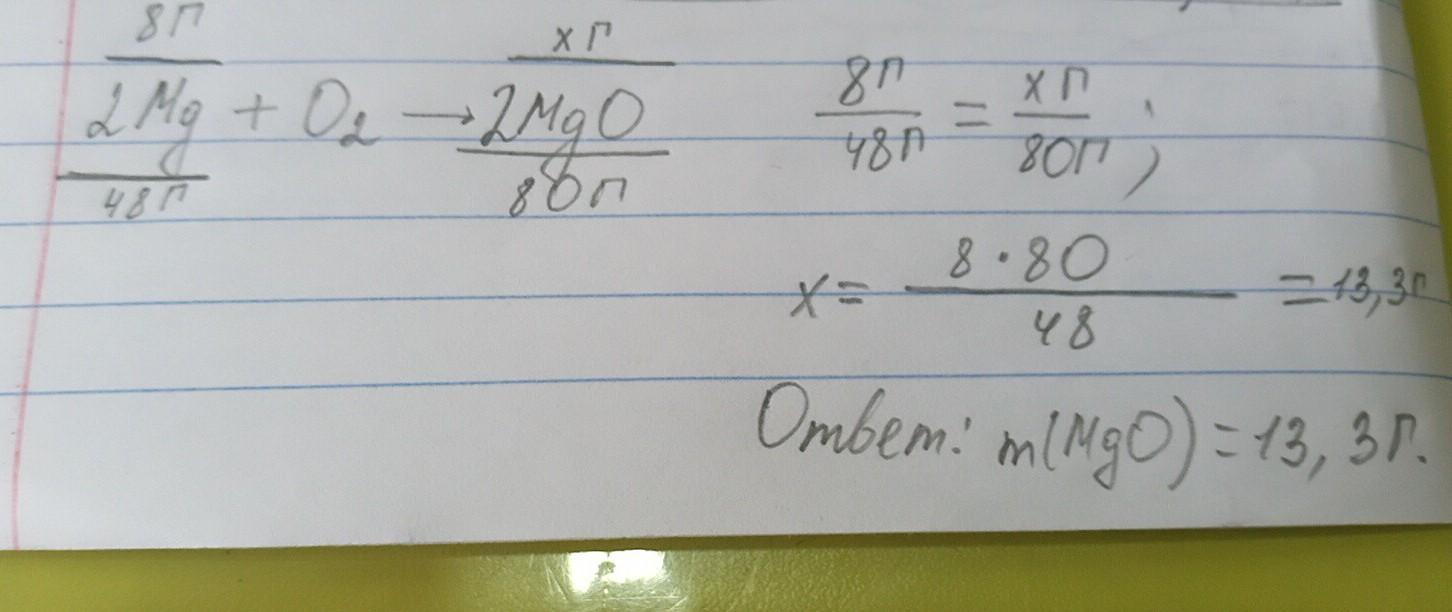 8г хг
2Mg + O₂ → 2MgO
48г 80г
8г/48г = хг/80г ;
x = 8 · 80 / 48 = 13,3г
Ответ: m(MgO) = 13, 3г.